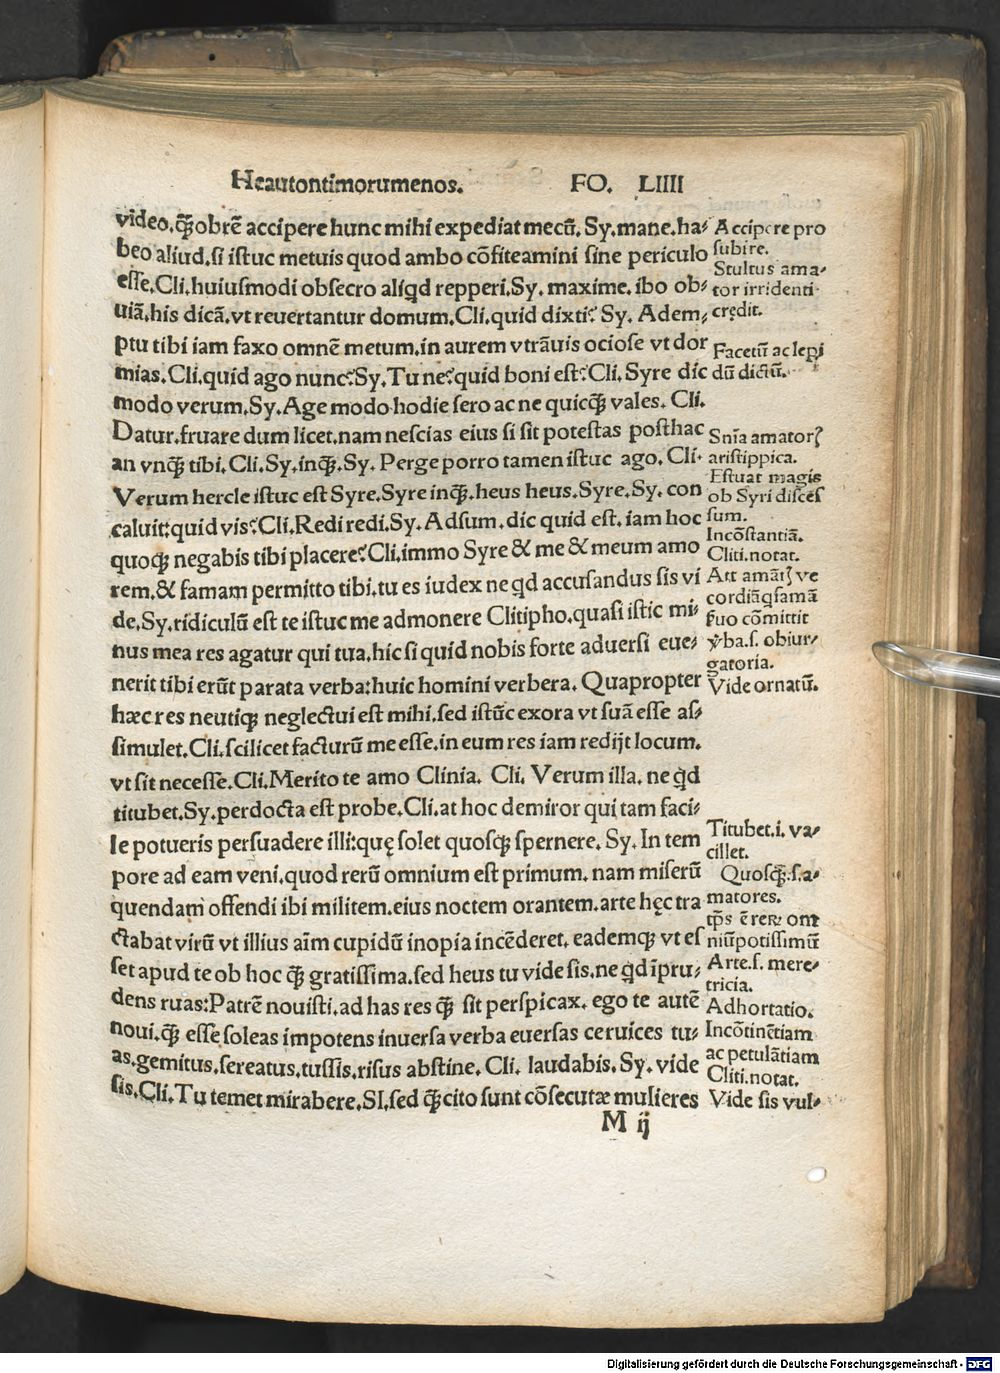 Heautontimorumenos. FO. LIIII
video. ꝙ̃obrē accipere hunc mihi expediat mecū. Sy. mane. ha⸗
beo aliud. si istuc metuis quod ambo cōfiteamini sine periculo
esse. Cli. huiusmodi obsecro aliqd repperi. Sy. maxime. ibo ob⸗
uiā. his dicā. vt reuertantur domum. Cli. quid dixti? Sy. Adem⸗
ptu tibi iam faxo omnē metum. in aurem vtrāuis ociose vt dor
mias. Cli. quid ago nunc? Sy. Tu ne? quid boni est? Cli. Syre dic
modo verum. Sy. Age modo hodie sero ac ne quicꝙ̃ vales. Cli.
Datur. fruare dum licet. nam nescias eius si sit potestas posthac
an vnꝙ̃ tibi. Cli. Sy. inꝙ̃. Sy. Perge porro tamen istuc ago. Cli.
Verum hercle istuc est Syre. Syre inꝙ̃. heus heus. Syre. Sy. con
caluit: quid vis? Cli. Redi redi. Sy. Adsum. dic quid est. iam hoc
quoqꝫ negabis tibi placere? Cli. immo Syre & me & meum amo
rem. & famam permitto tibi. tu es iudex ne qd accusandus sis vi
de. Sy. ridiculū est te istuc me admonere Clitipho. quasi istic mi⸗
nus mea res agatur qui tua. hic si quid nobis forte aduersi eue⸗
nerit tibi erūt parata verba: huic homini verbera. Quapropter
hæc res neutiqꝫ neglectui est mihi. sed istūc exora vt suā esse as⸗
simulet. Cli. scilicet facturū me esse. in eum res iam redijt locum.
vt sit necesse. Cli. Merito te amo Clinia. Cli. Verum illa. ne qd
titubet. Sy. perdocta est probe. Cli. at hoc demiror qui tam faci⸗
le potueris persuadere illi: quę solet quosꝙ̃ spernere. Sy. In tem
pore ad eam veni. quod rerū omnium est primum. nam miserū
quendam offendi ibi militem. eius noctem orantem. arte hęc tra
ctabat virū vt illius aīm cupidū inopia incēderet. eademqꝫ vt es
set apud te ob hoc ꝙ̃ gratissima. sed heus tu vide sis. ne qd īpru⸗
dens ruas: Patrē nouisti. ad has res ꝙ̃ sit perspicax. ego te autē
noui. ꝙ̃ esse soleas impotens inuersa verba euersas ceruices tu⸗
as. gemitus. sereatus. tussis. risus abstine. Cli. laudabis. Sy. vide
sis. Cli. Tu temet mirabere. SI. sed ꝙ̃cito sunt cōsecutæ mulieres
M ij
Accipere pro
subire.
Stultus ama⸗
tor irridenti
credit.
Facetū ac lepi
dū dictū.
Snīa amatorꝝ
aristippica.
Estuat magis
ob Syri disces
sum.
Incōstantiā.
Cliti. notat.
Att amātꝭ ve
cordiā
suo cōmittit
v̄ba. s. obiur⸗
gatoria.
Vide ornatū.
Titubet. i. va⸗
cillet.
Quosꝙ̃. s. a⸗
matores.
tp̄s ē rerꝝ om
niū potissimū
Arte. s. mere⸗
tricia.
Adhortatio.
Incōtinētiam
ac petulātiam
Cliti. notat.
Vide sis vul⸗
Digitalisierung gefördert durch die Deutsche Forschungsgemeinschaft - DFG